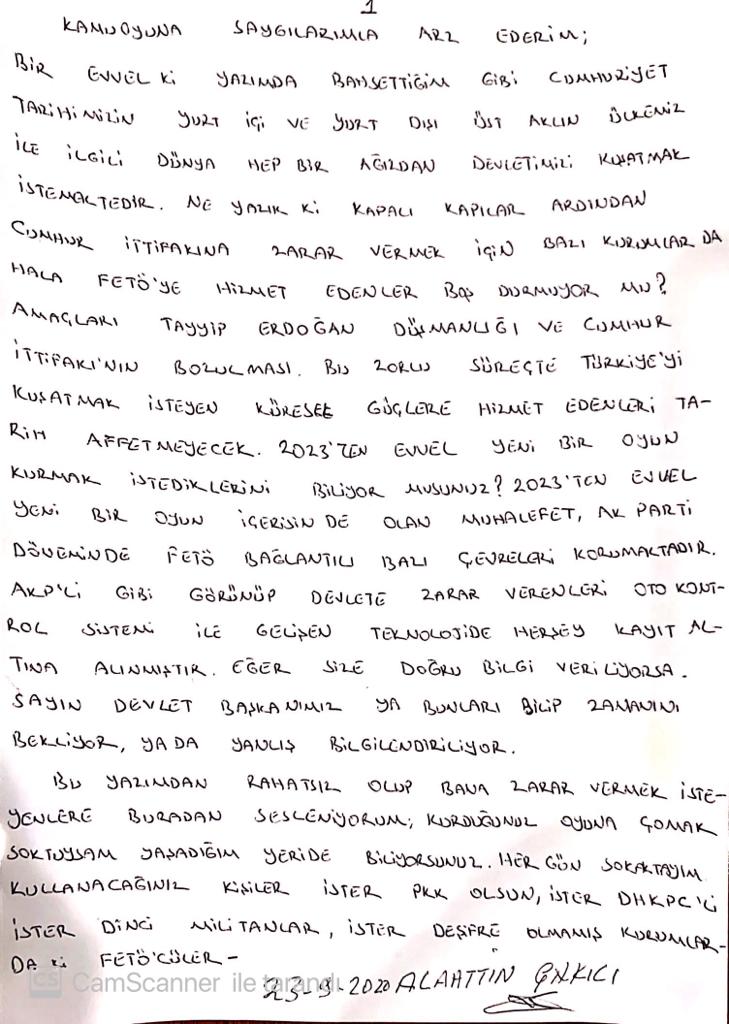 1
KAMUOYUNA SAYGILARIMLA ARZ EDERİM;
BİR EVVEL Kİ YAZIMDA BAHSETTİĞİM GİBİ CUMHURİYET
TARİHİMİZİN YURT İÇİ VE YURT DIŞI ÜST AKLIN ÜLKEMİZ
İLE İLGİLİ DÜNYA HEP BİR AĞIZDAN DEVLETİMİZİ KUŞATMAK
İSTEMEKTEDİR. NE YAZIK Kİ KAPALI KAPILAR ARDINDAN
CUMHUR İTTİFAKINA ZARAR VERMEK İÇİN BAZI KURUMLAR DA
HALA FETÖ'YE HİZMET EDENLER BOŞ DURMUYOR MU?
AMAÇLARI TAYYİP ERDOĞAN DÜŞMANLIĞI VE CUMHUR
İTTİFAKI'NIN BOZULMASI. BU ZORLU SÜREÇTE TÜRKİYE'Yİ
KUŞATMAK İSTEYEN KÜRESEL GÜÇLERE HİZMET EDENLERİ TA-
RİH AFFETMEYECEK. 2023'TEN EVVEL YENİ BİR OYUN
KURMAK İSTEDİKLERİNİ BİLİYOR MUSUNUZ? 2023'TEN EVVEL
YENİ BİR OYUN İÇERİSİN DE OLAN MUHALEFET, AK PARTİ
DÖNEMİNDE FETÖ BAĞLANTILI BAZI ÇEVRELERİ KORUMAKTADIR.
AKP'Lİ GİBİ GÖRÜNÜP DEVLETE ZARAR VERENLERİ OTO KONT-
ROL SİSTEMİ İLE GELİŞEN TEKNOLOJİDE HERŞEY KAYIT AL-
TINA ALINMIŞTIR. EĞER SİZE DOĞRU BİLGİ VERİLİYORSA.
SAYIN DEVLET BAŞKANIMIZ YA BUNLARI BİLİP ZAMANINI
BEKLİYOR, YA DA YANLIŞ BİLGİLENDİRİLİYOR.
BU YAZIMDAN RAHATSIZ OLUP BANA ZARAR VERMEK İSTE-
YENLERE BURADAN SESLENİYORUM; KURDUĞUNUZ OYUNA ÇOMAK
SOKTUYSAM YAŞADIĞIM YERİDE BİLİYORSUNUZ. HER GÜN SOKAKTAYIM
KULLANACAĞINIZ KİŞİLER İSTER PKK OLSUN, İSTER DHKPC'Lİ
İSTER DİNCİ MİLİTANLAR, İSTER DEŞİFRE OLMAMIŞ KURUMLAR-
DA Kİ FETÖ'CÜLER-
23-9-2020 ALAATTİN ÇAKICI
CS CamScanner ile tarandı